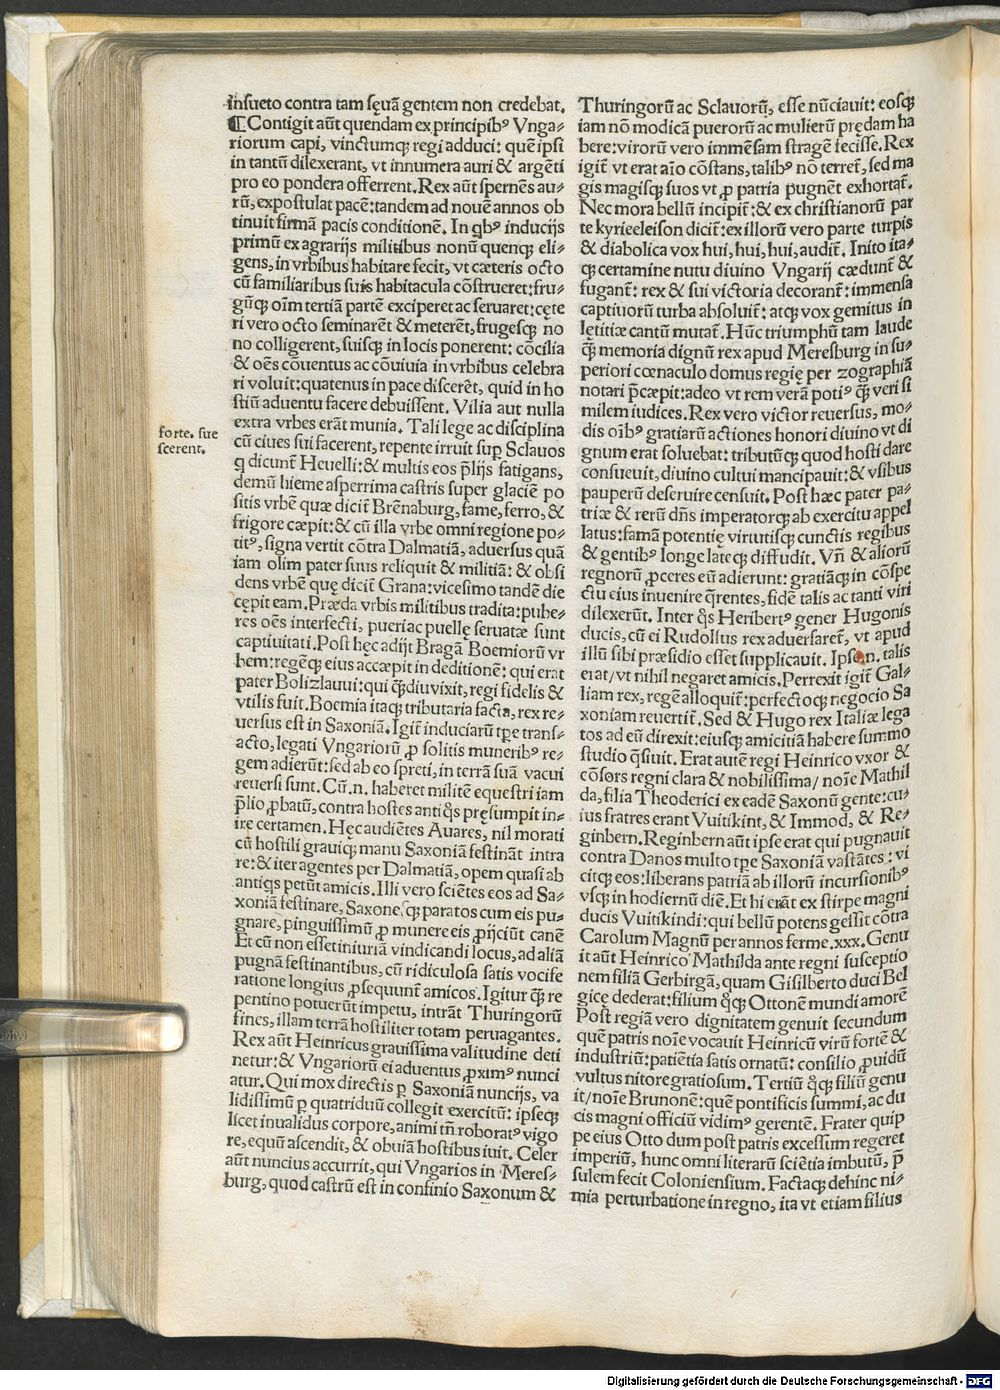 insueto contra tam sęuā gentem non credebat.
¶Contigit aūt quendam ex principibꝰ Vnga⸗
riorum capi, vinctumqꝫ regi adduci: quē ipsi
in tantū dilexerant, vt innumera auri & argēti
pro eo pondera offerrent. Rex aūt spernēs au⸗
rū, expostulat pacē: tandem ad nouē annos ob
tinuit firmā pacis conditionē. In qbꝰ inducijs
primū ex agrarijs militibus nonū quenqꝫ eli⸗
gens, in vrbibus habitare fecit, vt cæteris octo
cū familiaribus suis habitacula cōstrueret: fru⸗
gūqꝫ oīm tertiā partē exciperet ac seruaret: cęte
ri vero octo seminarēt & meterēt, frugesqꝫ no
no colligerent, suisqꝫ in locis ponerent: cōcilia
& oēs cōuentus ac cōuiuia in vrbibus celebra
ri voluit: quatenus in pace discerēt, quid in ho
stiū aduentu facere debuissent. Vilia aut nulla
extra vrbes erāt munia. Tali lege ac disciplina
cū ciues sui facerent, repente irruit suꝑ Sclauos
q dicunt̄ Heuelli: & multis eos p̄lijs fatigans,
demū hieme asperrima castris super glaciē po
sitis vrbē quæ dicit̄ Brēnaburg, fame, ferro, &
frigore cæpit: & cū illa vrbe omni regione po⸗
titꝰ, signa vertit cōtra Dalmatiā, aduersus quā
iam olim pater suus reliquit & militiā: & obsi
dens vrbē quę dicit̄ Grana: vicesimo tandē die
cępit eam. Præda vrbis militibus tradita: pube⸗
res oēs interfecti, pueri ac puellę seruatæ sunt
captiuitati. Post hęc adijt Bragā Boemiorū vr
bem: regēqꝫ eius accæpit in deditionē: qui erat
pater Bolizlauui: qui q̄diu vixit, regi fidelis &
vtilis fuit. Boemia itaqꝫ tributaria facta, rex re⸗
uersus est in Saxoniā. Igit̄ induciarū tꝑe trans⸗
acto, legati Vngariorū ꝓ solitis muneribꝰ re⸗
gem adierūt: sed ab eo spreti, in terrā suā vacui
reuersi sunt. Cū .n. haberet militē equestri iam
p̄lio ꝓbatū, contra hostes antiq̄s pręsumpit in⸗
ire certamen. Hęc audiētes Auares, nil morati
cū hostili grauiqꝫ manu Saxoniā festināt intra
re: & iter agentes per Dalmatiā, opem quasi ab
antiqs petūt amicis. Illi vero sciētes eos ad Sa⸗
xoniā festinare, Saxonesqꝫ paratos cum eis pu⸗
gnare, pinguissimū ꝓ munere eis ꝓijciūt canē
Et cū non esset iniuriā vindicandi locus, ad aliā
pugnā festinantibus, cū ridiculosa satis vocife
ratione longius ꝓsequunt̄ amicos. Igitur q̄ re
pentino potuerūt impetu, intrāt Thuringorū
fines, illam terrā hostiliter totam peruagantes.
Rex aūt Heinricus grauissima valitudine deti
netur: & Vngariorū ei aduentus ꝓximꝰ nunci
atur. Qui mox directis ꝑ Saxoniā nuncijs, va
lidissimū ꝑ quatriduū collegit exercitū: ipseqꝫ
licet inualidus corpore, animi tn̄ roboratꝰ vigo
re, equū ascendit, & obuiā hostibus iuit. Celer
aūt nuncius accurrit, qui Vngarios in Meres⸗
burg, quod castrū est in confinio Saxonum &
forte. sue
scerent.
Thuringorū ac Sclauorū, esse nūciauit: eosqꝫ
iam nō modicā puerorū ac mulierū prędam ha
bere: virorū vero immēsam stragē fecisse. Rex
igit̄ vt erat aīo cōstans, talibꝰ nō terret̄, sed ma
gis magisqꝫ suos vt ꝓ patria pugnēt exhortat̄.
Nec mora bellū incipit̄: & ex christianorū par
te kyrieeleison dicit̄: ex illorū vero parte turpis
& diabolica vox hui, hui, hui, audit̄. Inito ita⸗
qꝫ certamine nutu diuino Vngarij cædunt̄ &
fugant̄: rex & sui victoria decorant̄: immensa
captiuorū turba absoluit̄: atqꝫ vox gemitus in
lętitiæ cantū mutat̄. Hūc triumphū tam laude
q̄ memoria dignū rex apud Meresburg in su⸗
periori cœnaculo domus regię per zographiā
notari p̄cæpit: adeo vt rem verā potiꝰ q̄ veri si
milem iudices. Rex vero victor reuersus, mo⸗
dis oībꝰ gratiarū actiones honori diuino vt di
gnum erat soluebat: tributūqꝫ quod hosti dare
consueuit, diuino cultui mancipauit: & vsibus
pauperū deseruire censuit. Post hæc pater pa⸗
triæ & rerū dn̄s imperatorqꝫ ab exercitu appel
latus: famā potentię virtutisqꝫ cunctis regibus
& gentibꝰ longe lateqꝫ diffudit. Vn̄ & aliorū
regnorū ꝓceres eū adierunt: gratiāqꝫ in cōspe
ctu eius inuenire q̄rentes, fidē talis ac tanti viri
dilexerūt. Inter q̄s Heribertꝰ gener Hugonis
ducis, cū ei Rudolfus rex aduersaret̄, vt apud
illū sibi præsidio esset supplicauit. Ipse .n. talis
erat/ vt nihil negaret amicis. Perrexit igit̄ Gal⸗
liam rex, regē alloquit̄: perfectoqꝫ negocio Sa
xoniam reuertit̄. Sed & Hugo rex Italiæ lega
tos ad eū direxit: eiusqꝫ amicitiā habere summo
studio q̄siuit. Erat autē regi Heinrico vxor &
cōsors regni clara & nobilissima/ noīe Mathil
da, filia Theoderici ex eadē Saxonū gente: cu⸗
ius fratres erant Vuitikint, & Immod, & Re⸗
ginbern. Reginbern aūt ipse erat qui pugnauit
contra Danos multo tꝑe Saxoniā vastātes: vi
citqꝫ eos: liberans patriā ab illorū incursionibꝰ
vsqꝫ in hodiernū diē. Et hi erāt ex stirpe magni
ducis Vuitikindi: qui bellū potens gessit cōtra
Carolum Magnū per annos ferme .xxx. Genu
it aūt Heinrico Mathilda ante regni susceptio
nem filiā Gerbirgā, quam Gisilberto duci Bel
gicę dederat: filium q̄qꝫ Ottonē mundi amorē
Post regiā vero dignitatem genuit secundum
quē patris noīe vocauit Heinricū virū fortē &
industriū: patiētia satis ornatū: consilio ꝓuidū
vultus nitore gratiosum. Tertiū q̄qꝫ filiū genu
it/ noīe Brunonē: quē pontificis summi, ac du
cis magni officiū vidimꝰ gerentē. Frater quip
pe eius Otto dum post patris excessum regeret
imperiū, hunc omni literarū sciētia imbutū, p̄
sulem fecit Coloniensium. Factaqꝫ dehinc ni⸗
mia perturbatione in regno, ita vt etiam filius
Digitalisierung gefördert durch die Deutsche Forschungsgemeinschaft - DFG